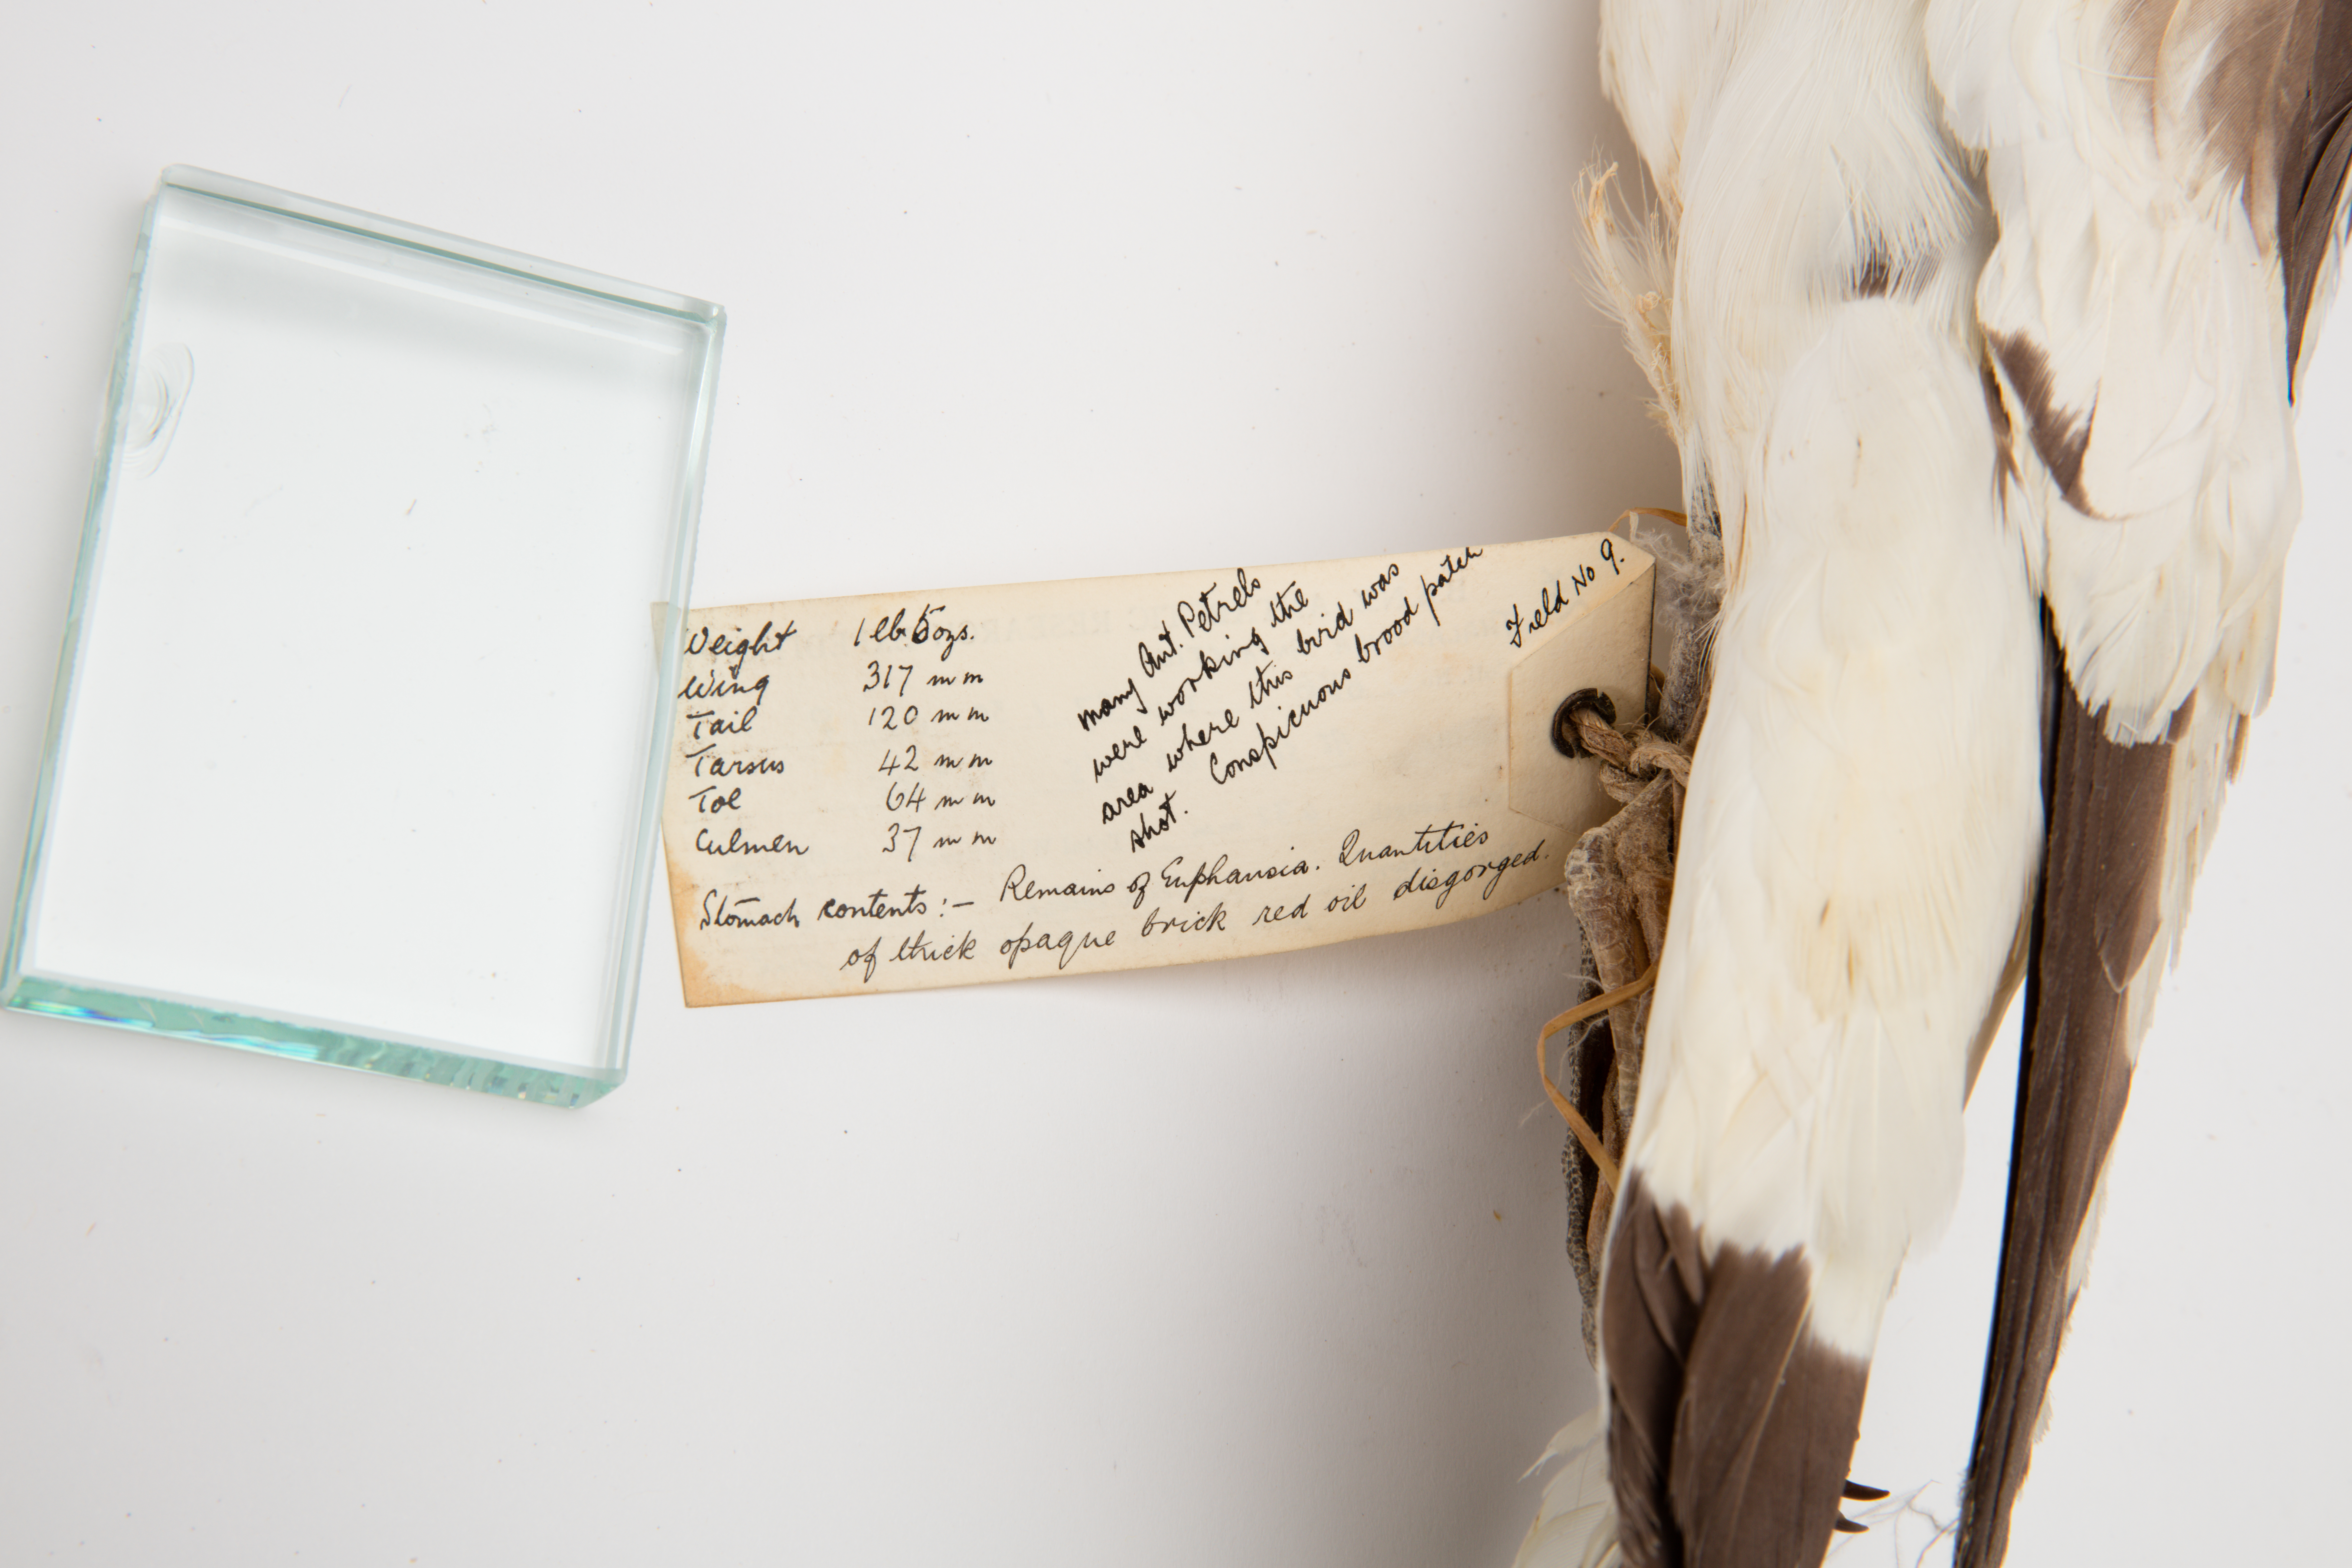 Weight 1 lb. 5 ozs.
Wing 317 mm
Tail 120 mm
Tarsus 42 mm
Toe 64 mm
Culmen 37 mm
many Ant. Petrels
were working the
area where this bird was
shot. Conspicuous brood patch
Field No 9.
Stomach contents:- Remains of Euphausia. Quantities
of thick opaque brick red oil disgorged.